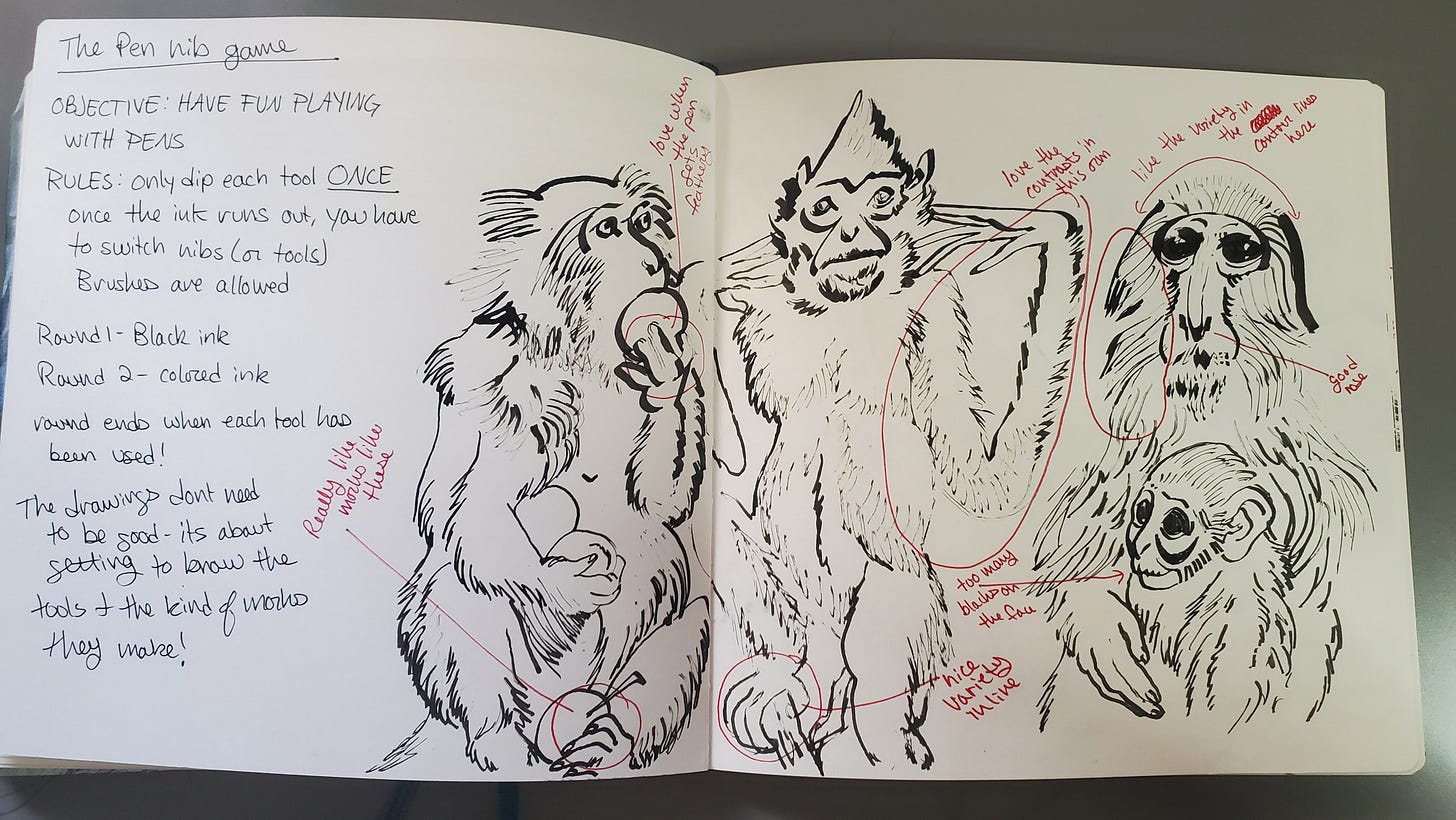 The Pen nib game
OBJECTIVE: HAVE FUN PLAYING
WITH PENS
RULES: only dip each tool ONCE
once the ink runs out, you have
to switch nibs (or tools)
Brushes are allowed
Round 1 - Black ink
Round 2 - colored ink
round ends when each tool has
been used!
The drawings dont need
to be good - its about
getting to know the
tools + the kind of marks
they make!
Really like
marks like
these
love when
the pen
gets
feathery
love the
contrasts in
this arm
like the variety in
the contour lines
here
good
nose
too many
blacks on
the face
nice
variety
in line